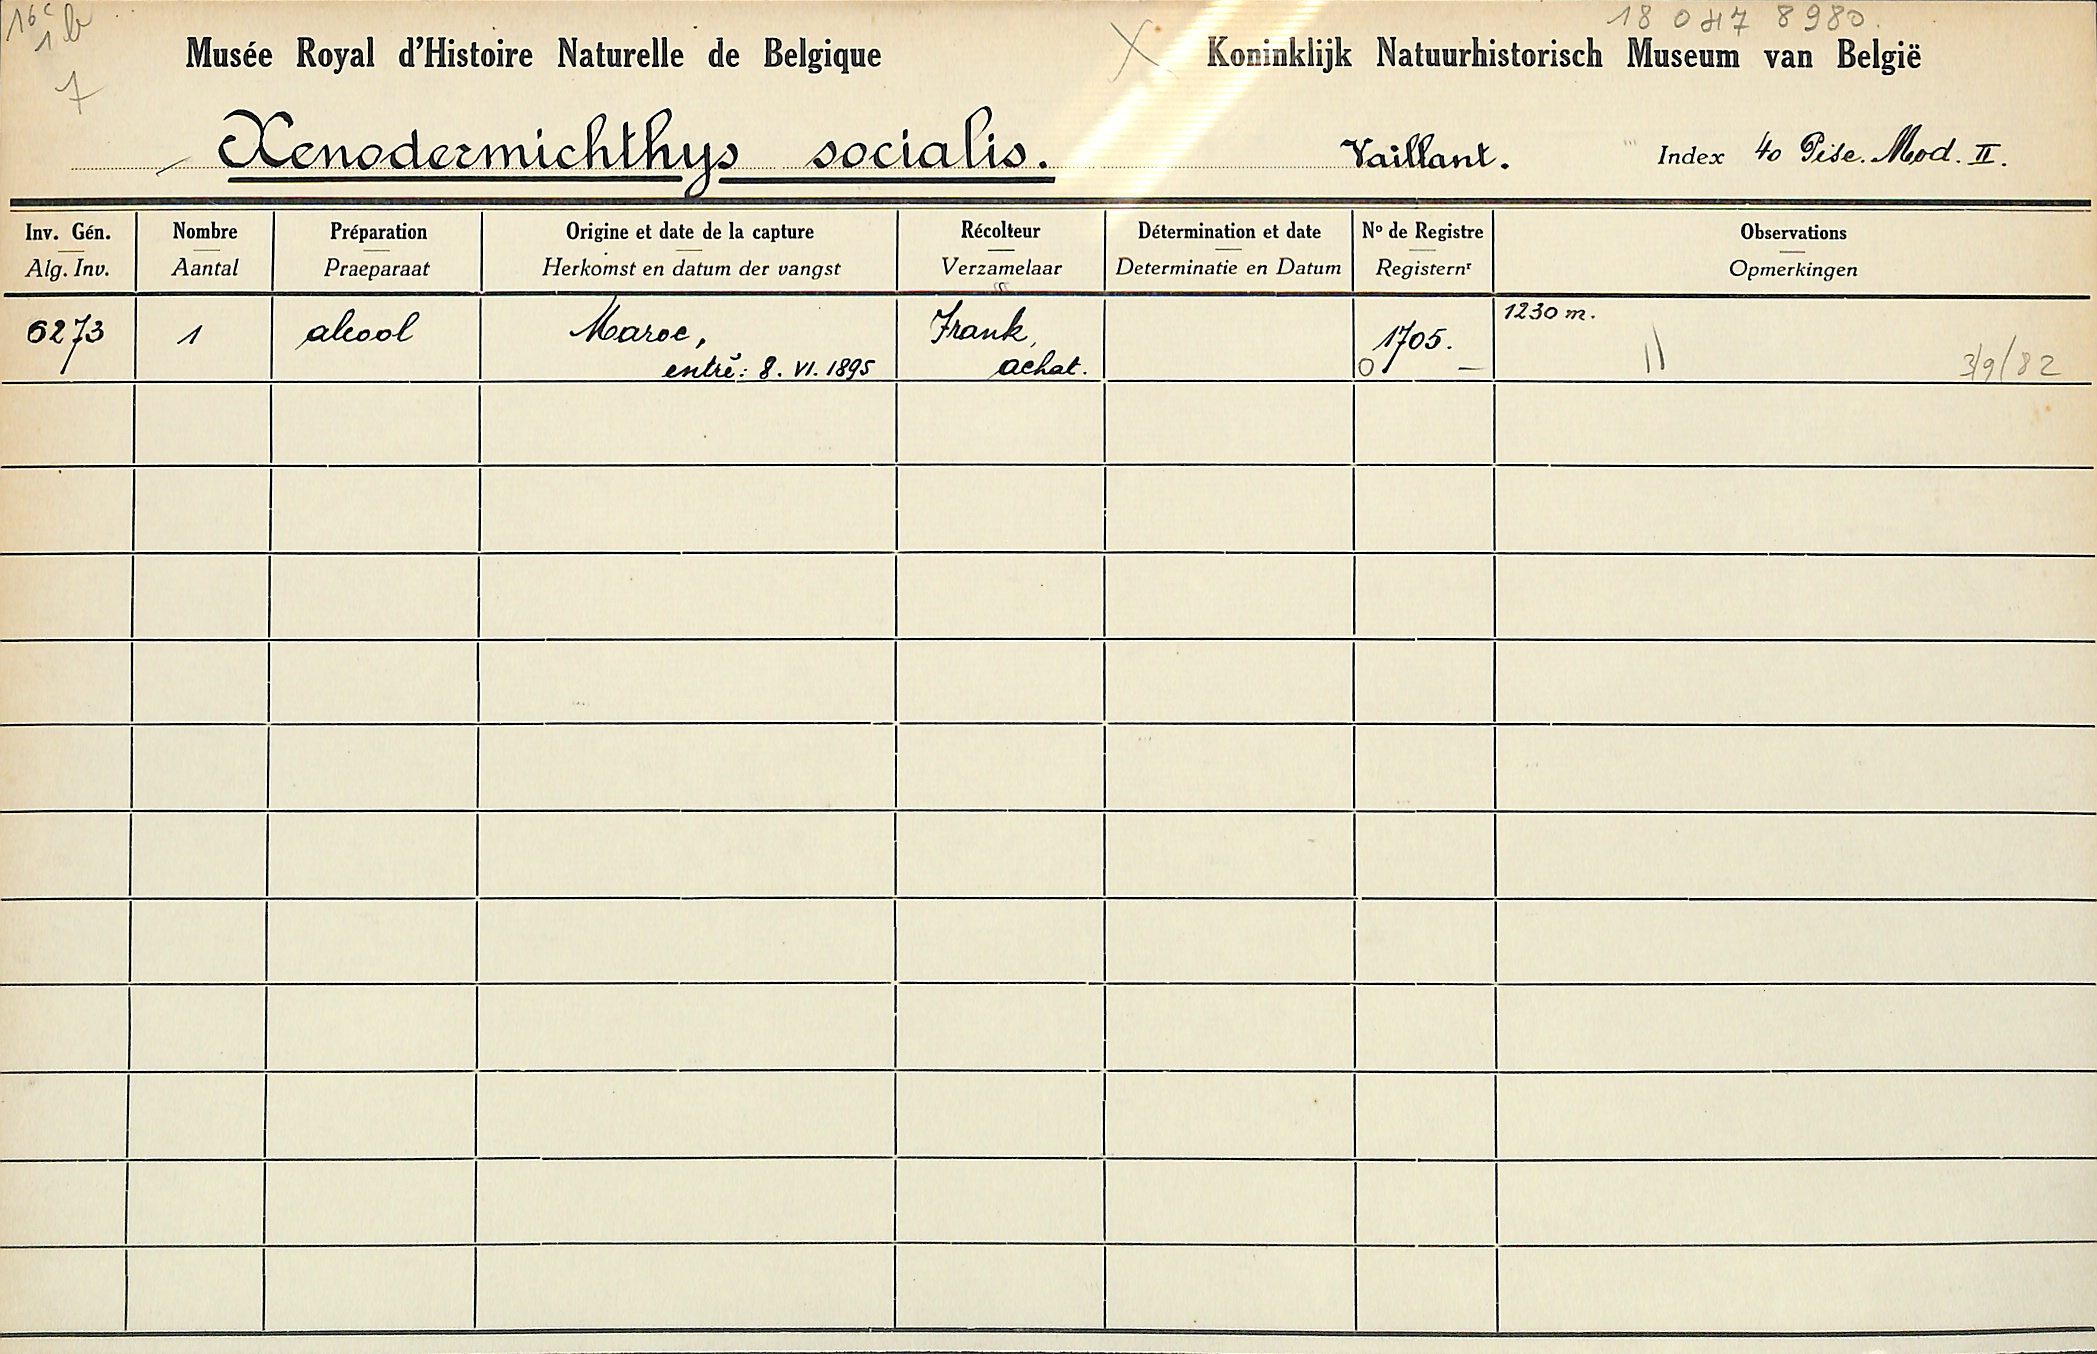 16c
1b
7
18 047 8980.
X
Musée Royal d'Histoire Naturelle de Belgique
Koninklijk Natuurhistorisch Museum van België
Xenodermichthys socialis. Vaillant. Index 40 Pisc. Mod. II.
Inv. Gén. Nombre Préparation Origine et date de la capture Récolteur Détermination et date No de Registre Observations
Alg. Inv. Aantal Praeparaat Herkomst en datum der vangst Verzamelaar Determinatie en Datum Registernr Opmerkingen
6273 1 alcool Maroc, Frank, 1705. 1230 m.
entré: 8. VI. 1895 achat. 3/9/82